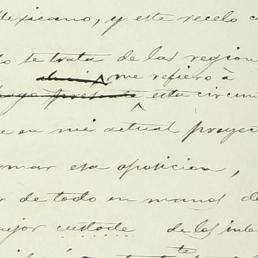 Mexicano, y este recelo c
do se trata de las region
me refiero á
hago presente esta circun
e en mi actual proyec
ormar esa oposicion,
r de todo en manos de
ejor custode de los inte
te